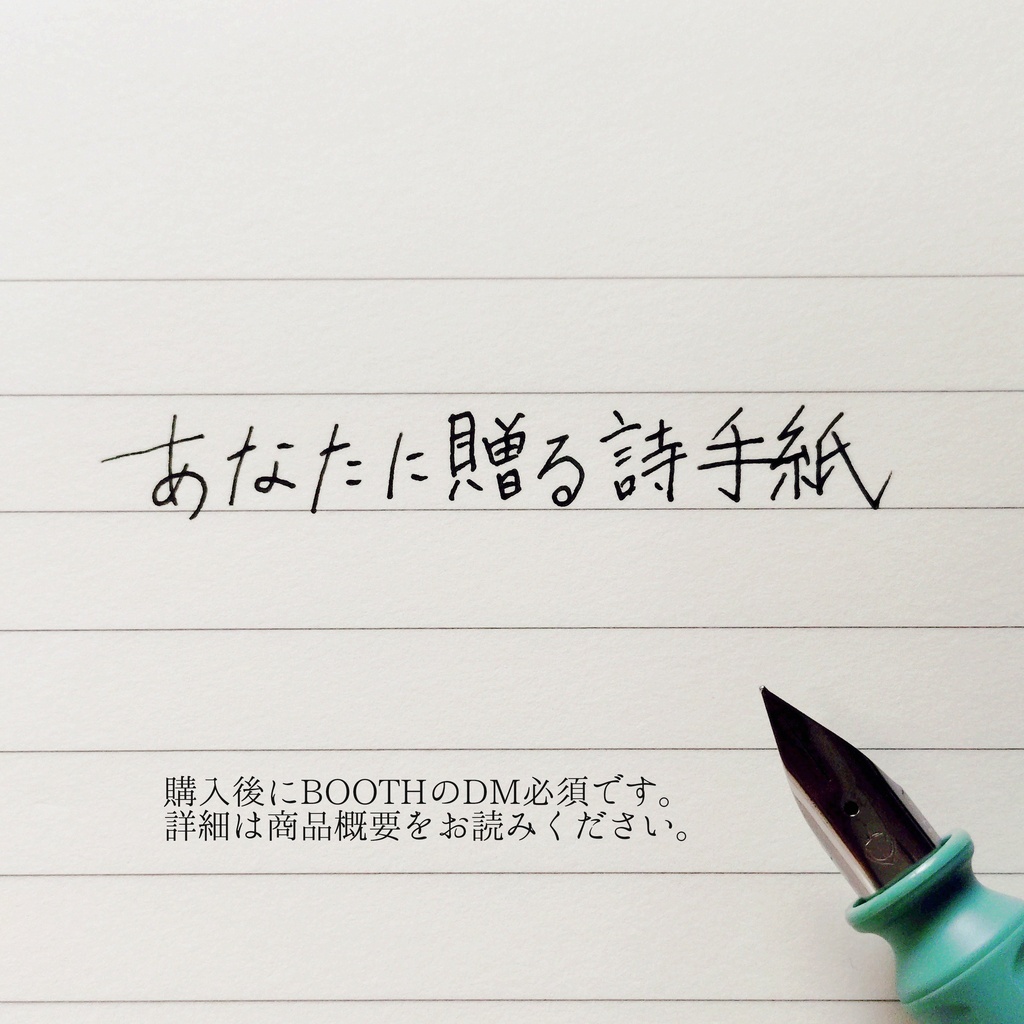 あなたに贈る詩手紙
購入後にBOOTHのDM必須です。
詳細は商品概要をお読みください。